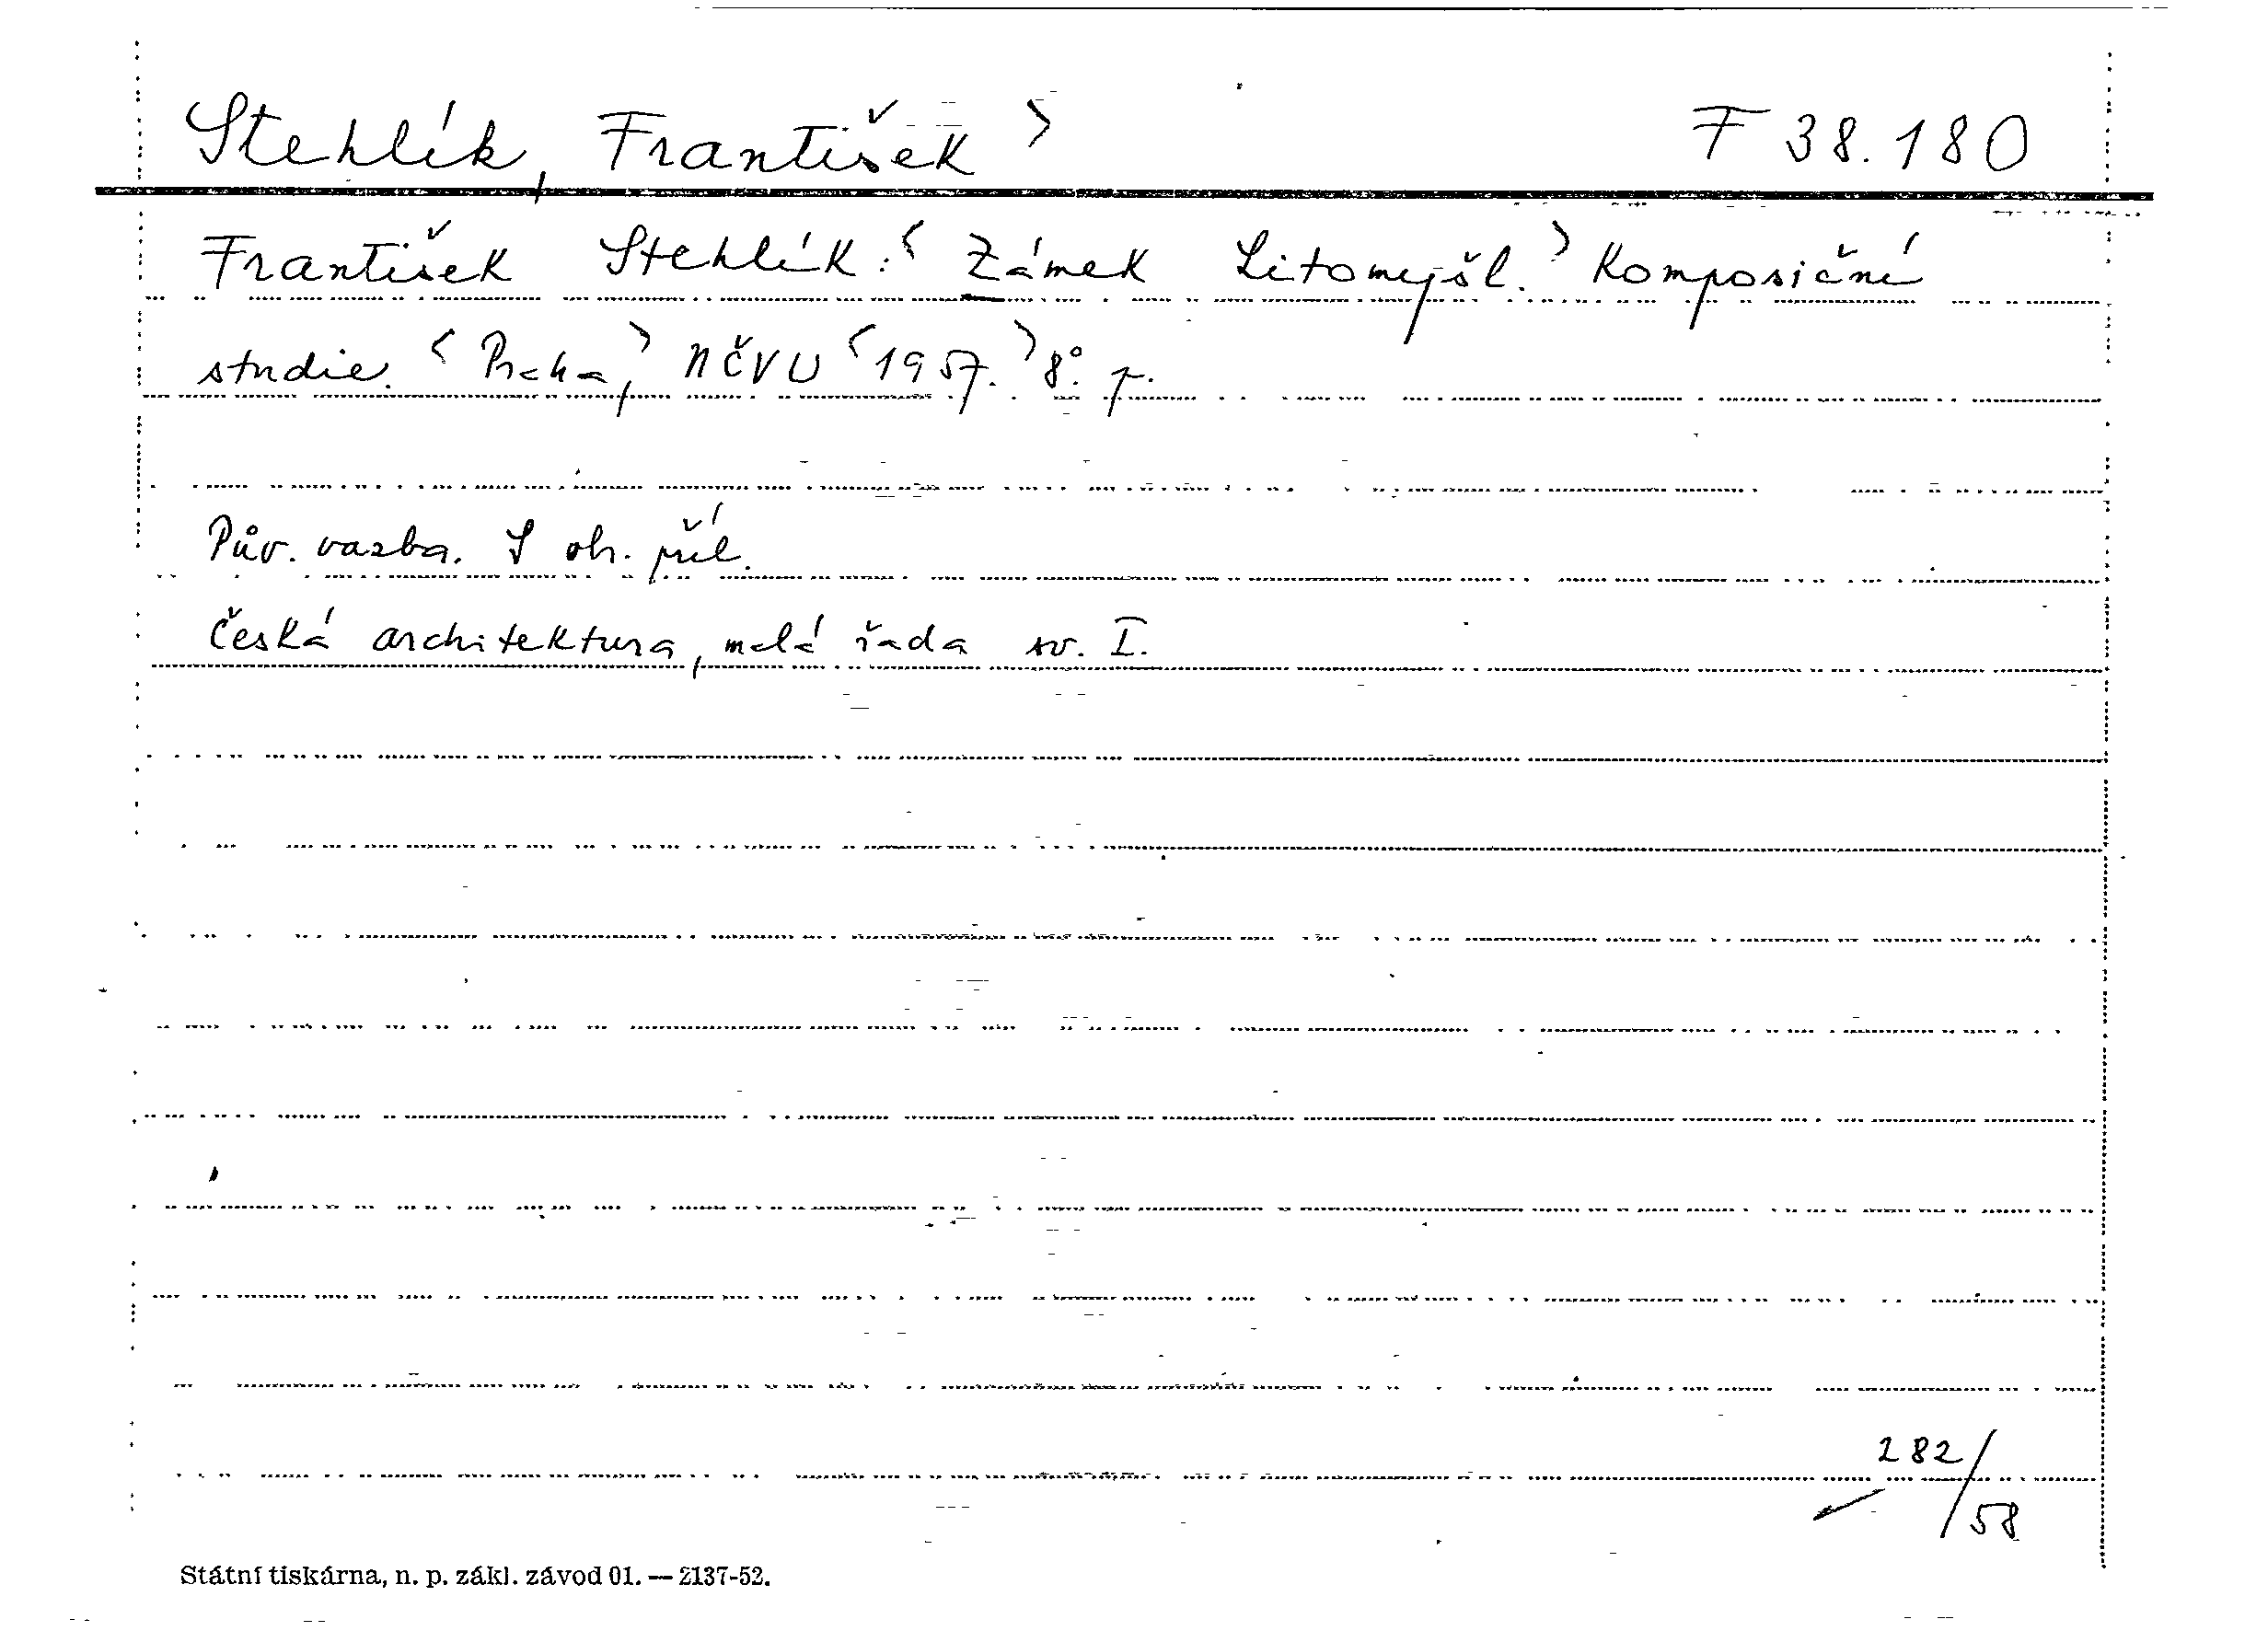 Stehlík, František > F 38.180
František Stehlík: < Zámek Litomyšl. > Komposiční
studie. < Praha, > NČVU < 1957. > 8°. p.
Pův. vazba. S obr. příl.
Česká architektura, malá řada sv. I.
282/58
Státní tiskárna, n. p. zákl. závod 01. — 2137-52.